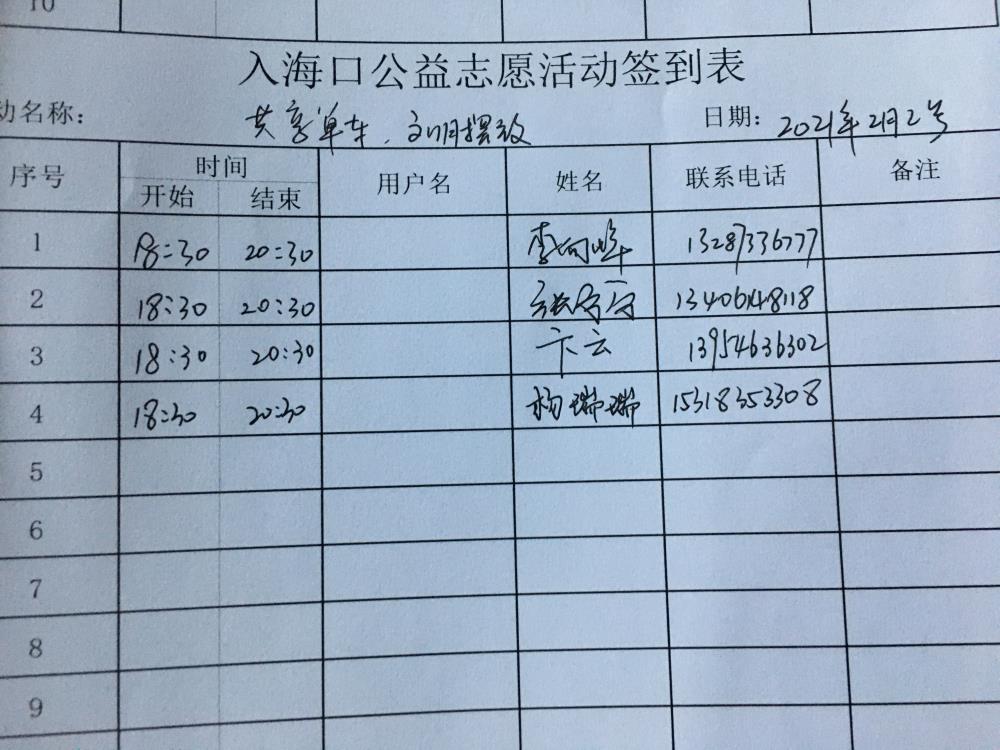 10
入海口公益志愿活动签到表
动名称： 共享单车，文明摆放 日期：2021年2月2号
序号 时间 用户名 姓名 联系电话 备注
开始 结束
1 18:30 20:30 李向峰 13287336777
2 18:30 20:30 13406148118
3 18:30 20:30 卞云 13954636302
4 18:30 20:30 杨瑞瑞 15318353308
5
6
7
8
9